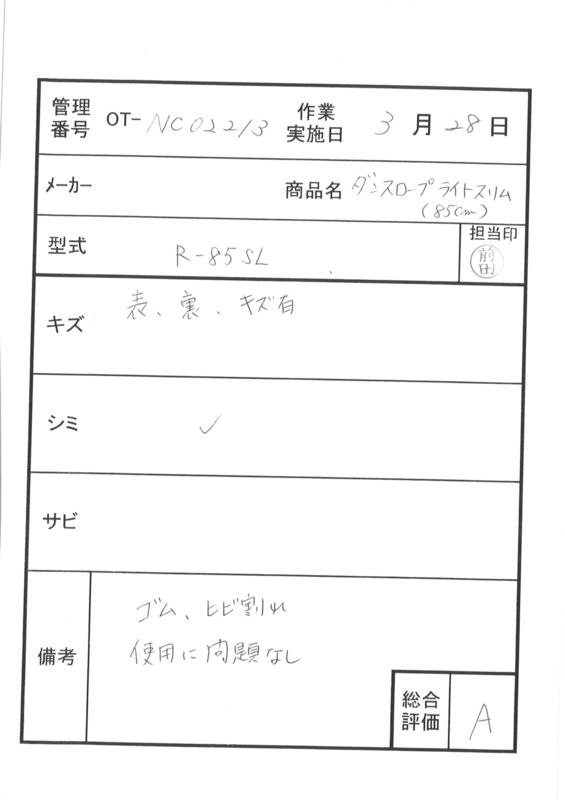 管理番号 OT-NC02213 作業実施日 3月28日
メーカー 商品名 ダンスロープライトスリム
(85cm)
型式 R-85SL 担当印
前田
キズ 表、裏、キズ有
シミ ✓
サビ
備考 ゴム、ヒビ割れ
使用に問題なし
総合評価 A